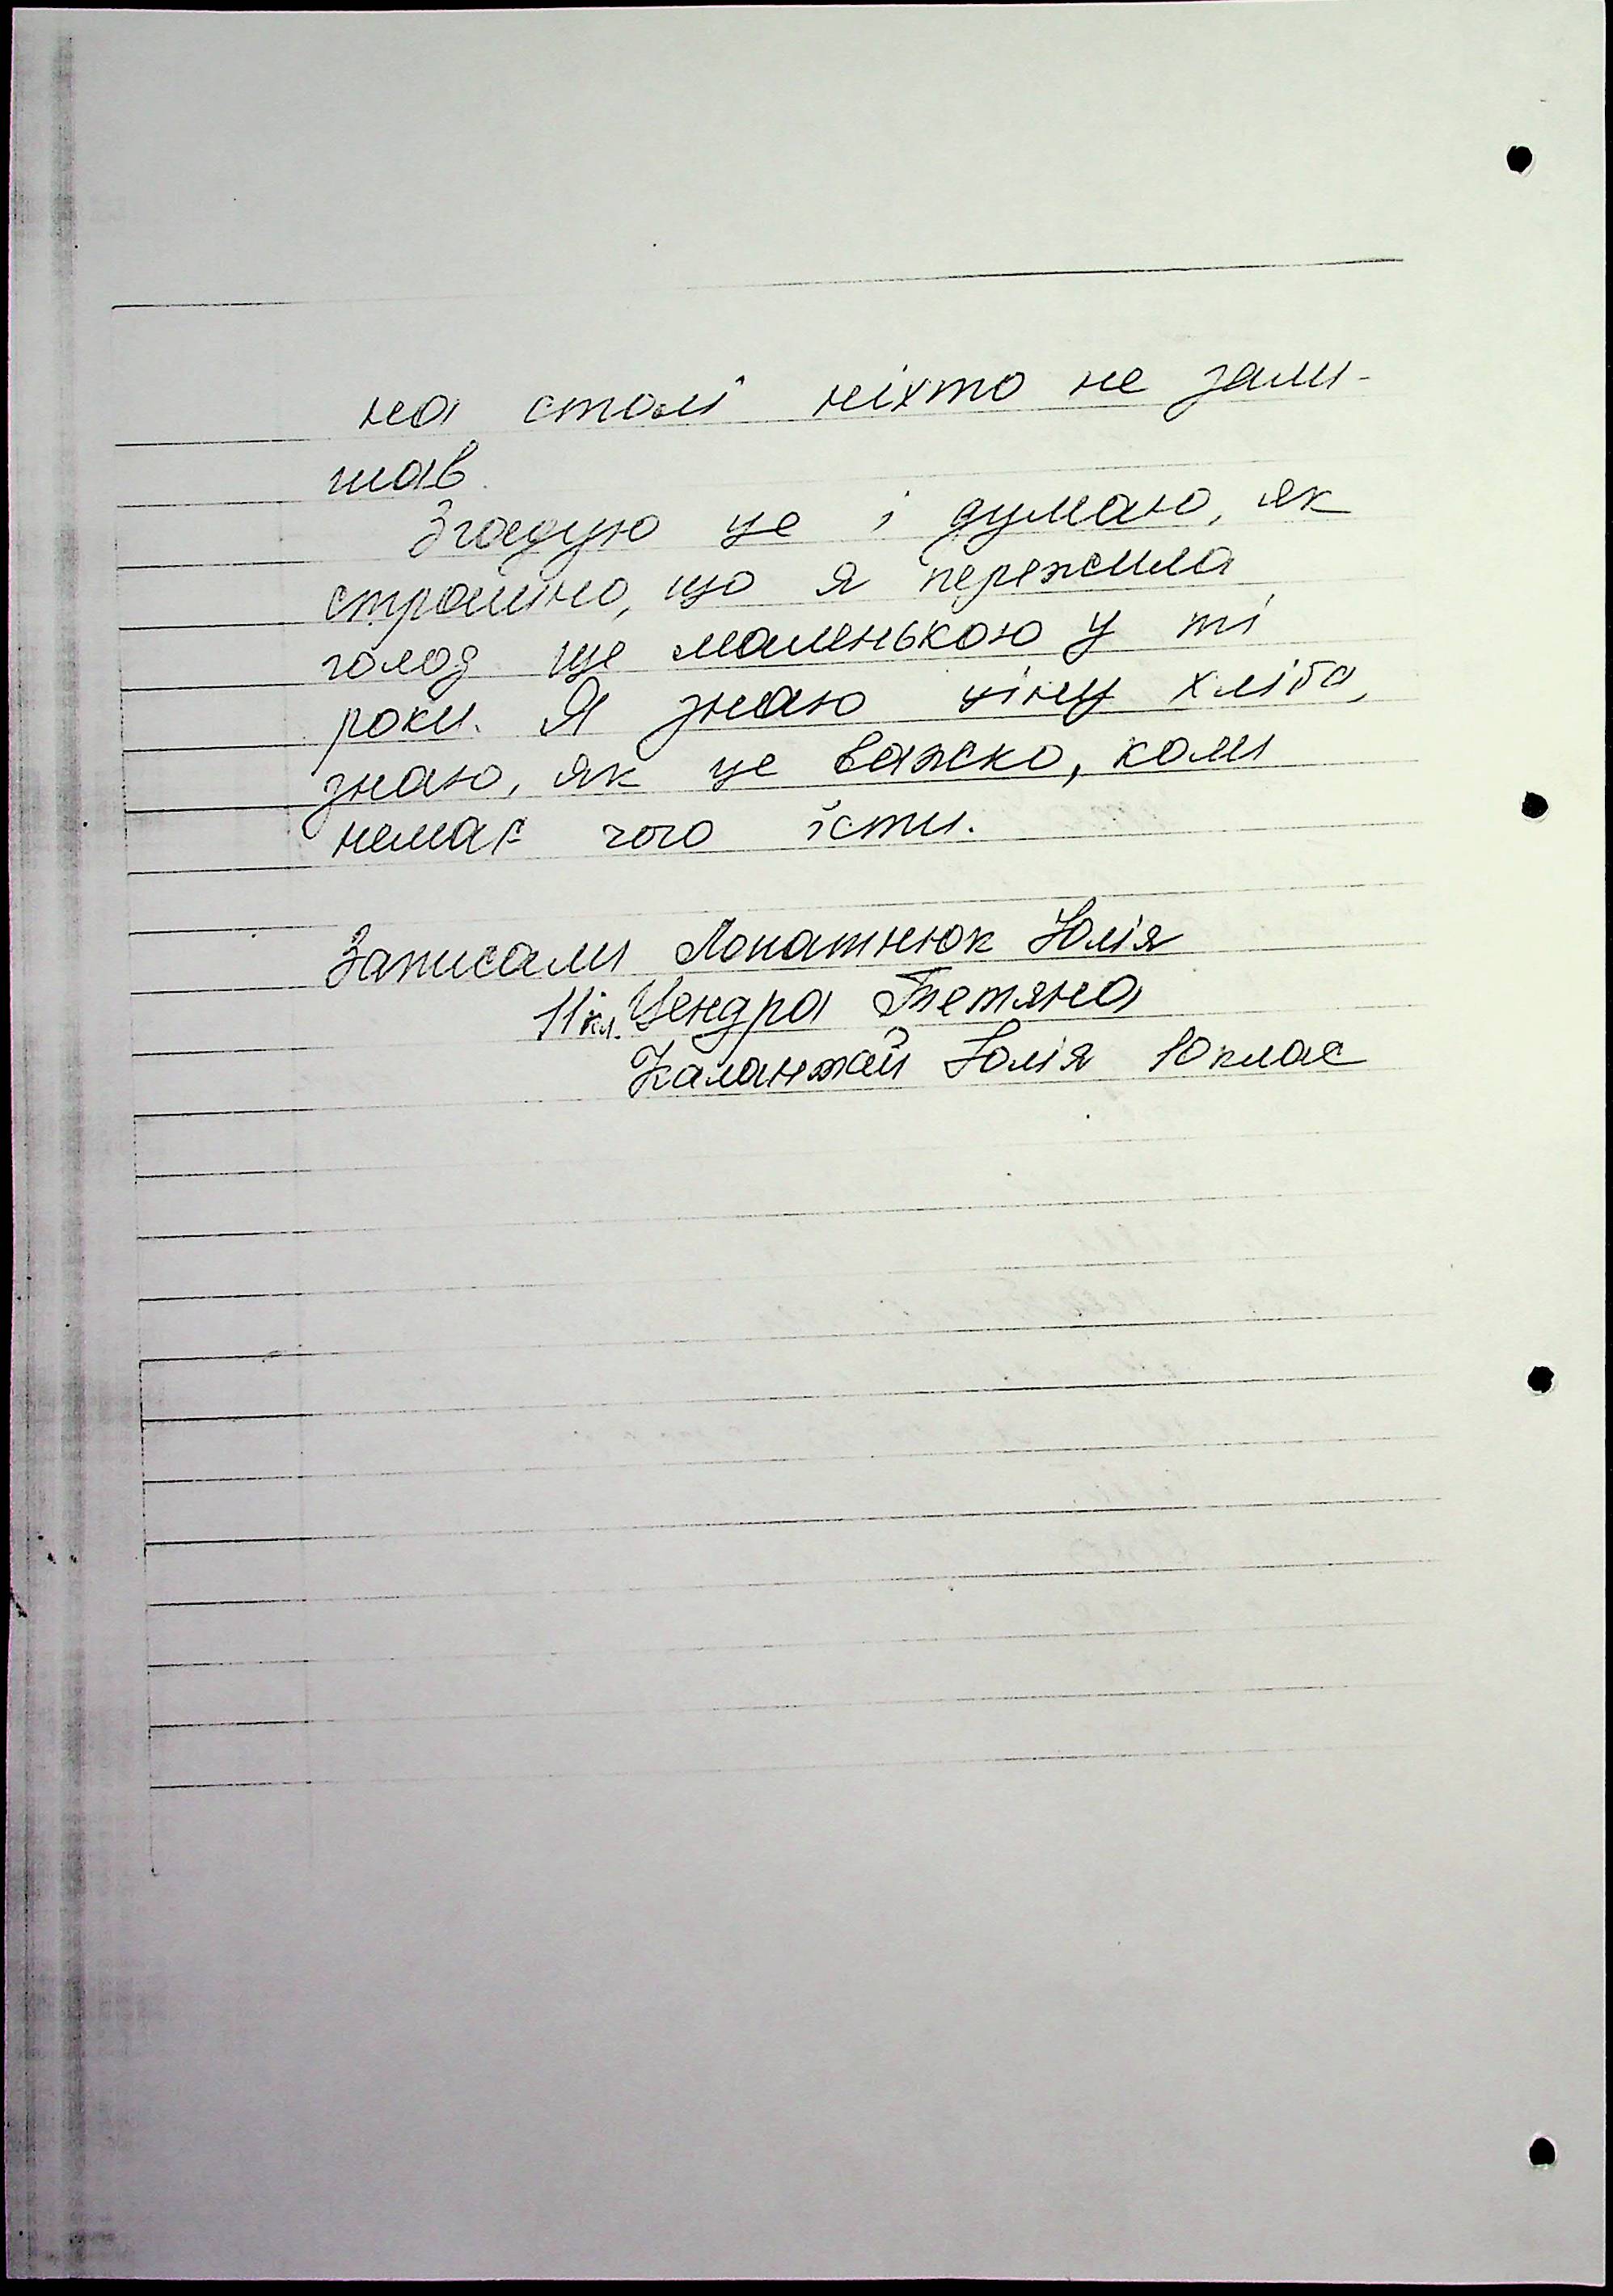 на столі ніхто не зали-
шав.
Згадую це і думаю, як
страшно, що я пережила
голод ще маленькою у ті
роки. Я знаю ціну хліба,
знаю, як це важко, коли
немає чого їсти.
Записали Лопатнюк Юлія
11 кл. Цендра Тетяна
Каланжай Юлія 10 клас